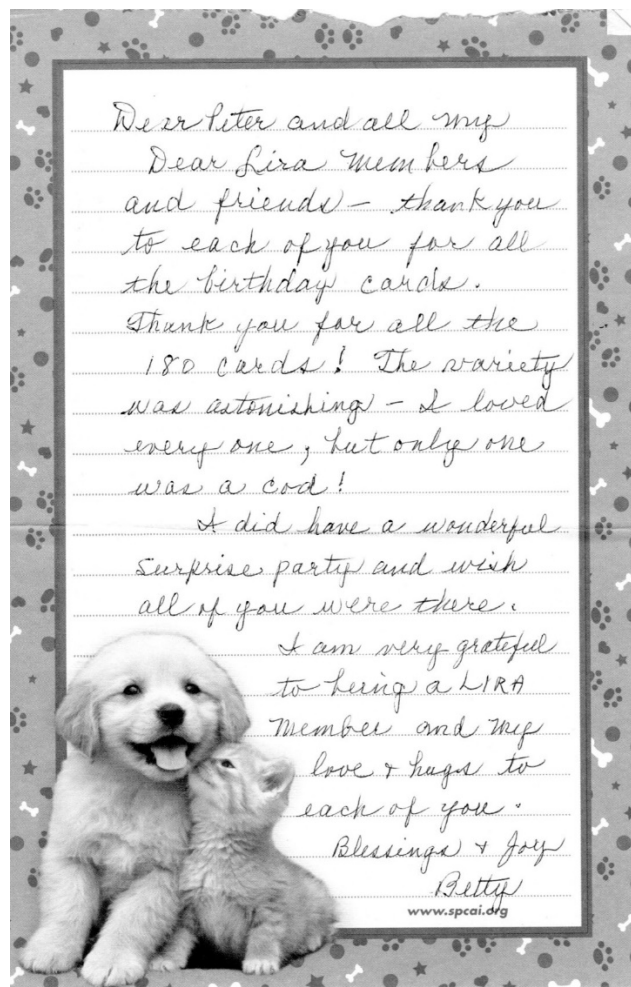 Dear Peter and all my
Dear Lira Members
and friends – thank you
to each of you for all
the birthday cards.
Thank you for all the
180 cards! The variety
was astonishing – I loved
every one, but only one
was a cod!
I did have a wonderful
surprise party and wish
all of you were there.
I am very grateful
to being a LIRA
Member and my
love + hugs to
each of you.
Blessings + Joy
Betty
www.spcai.org